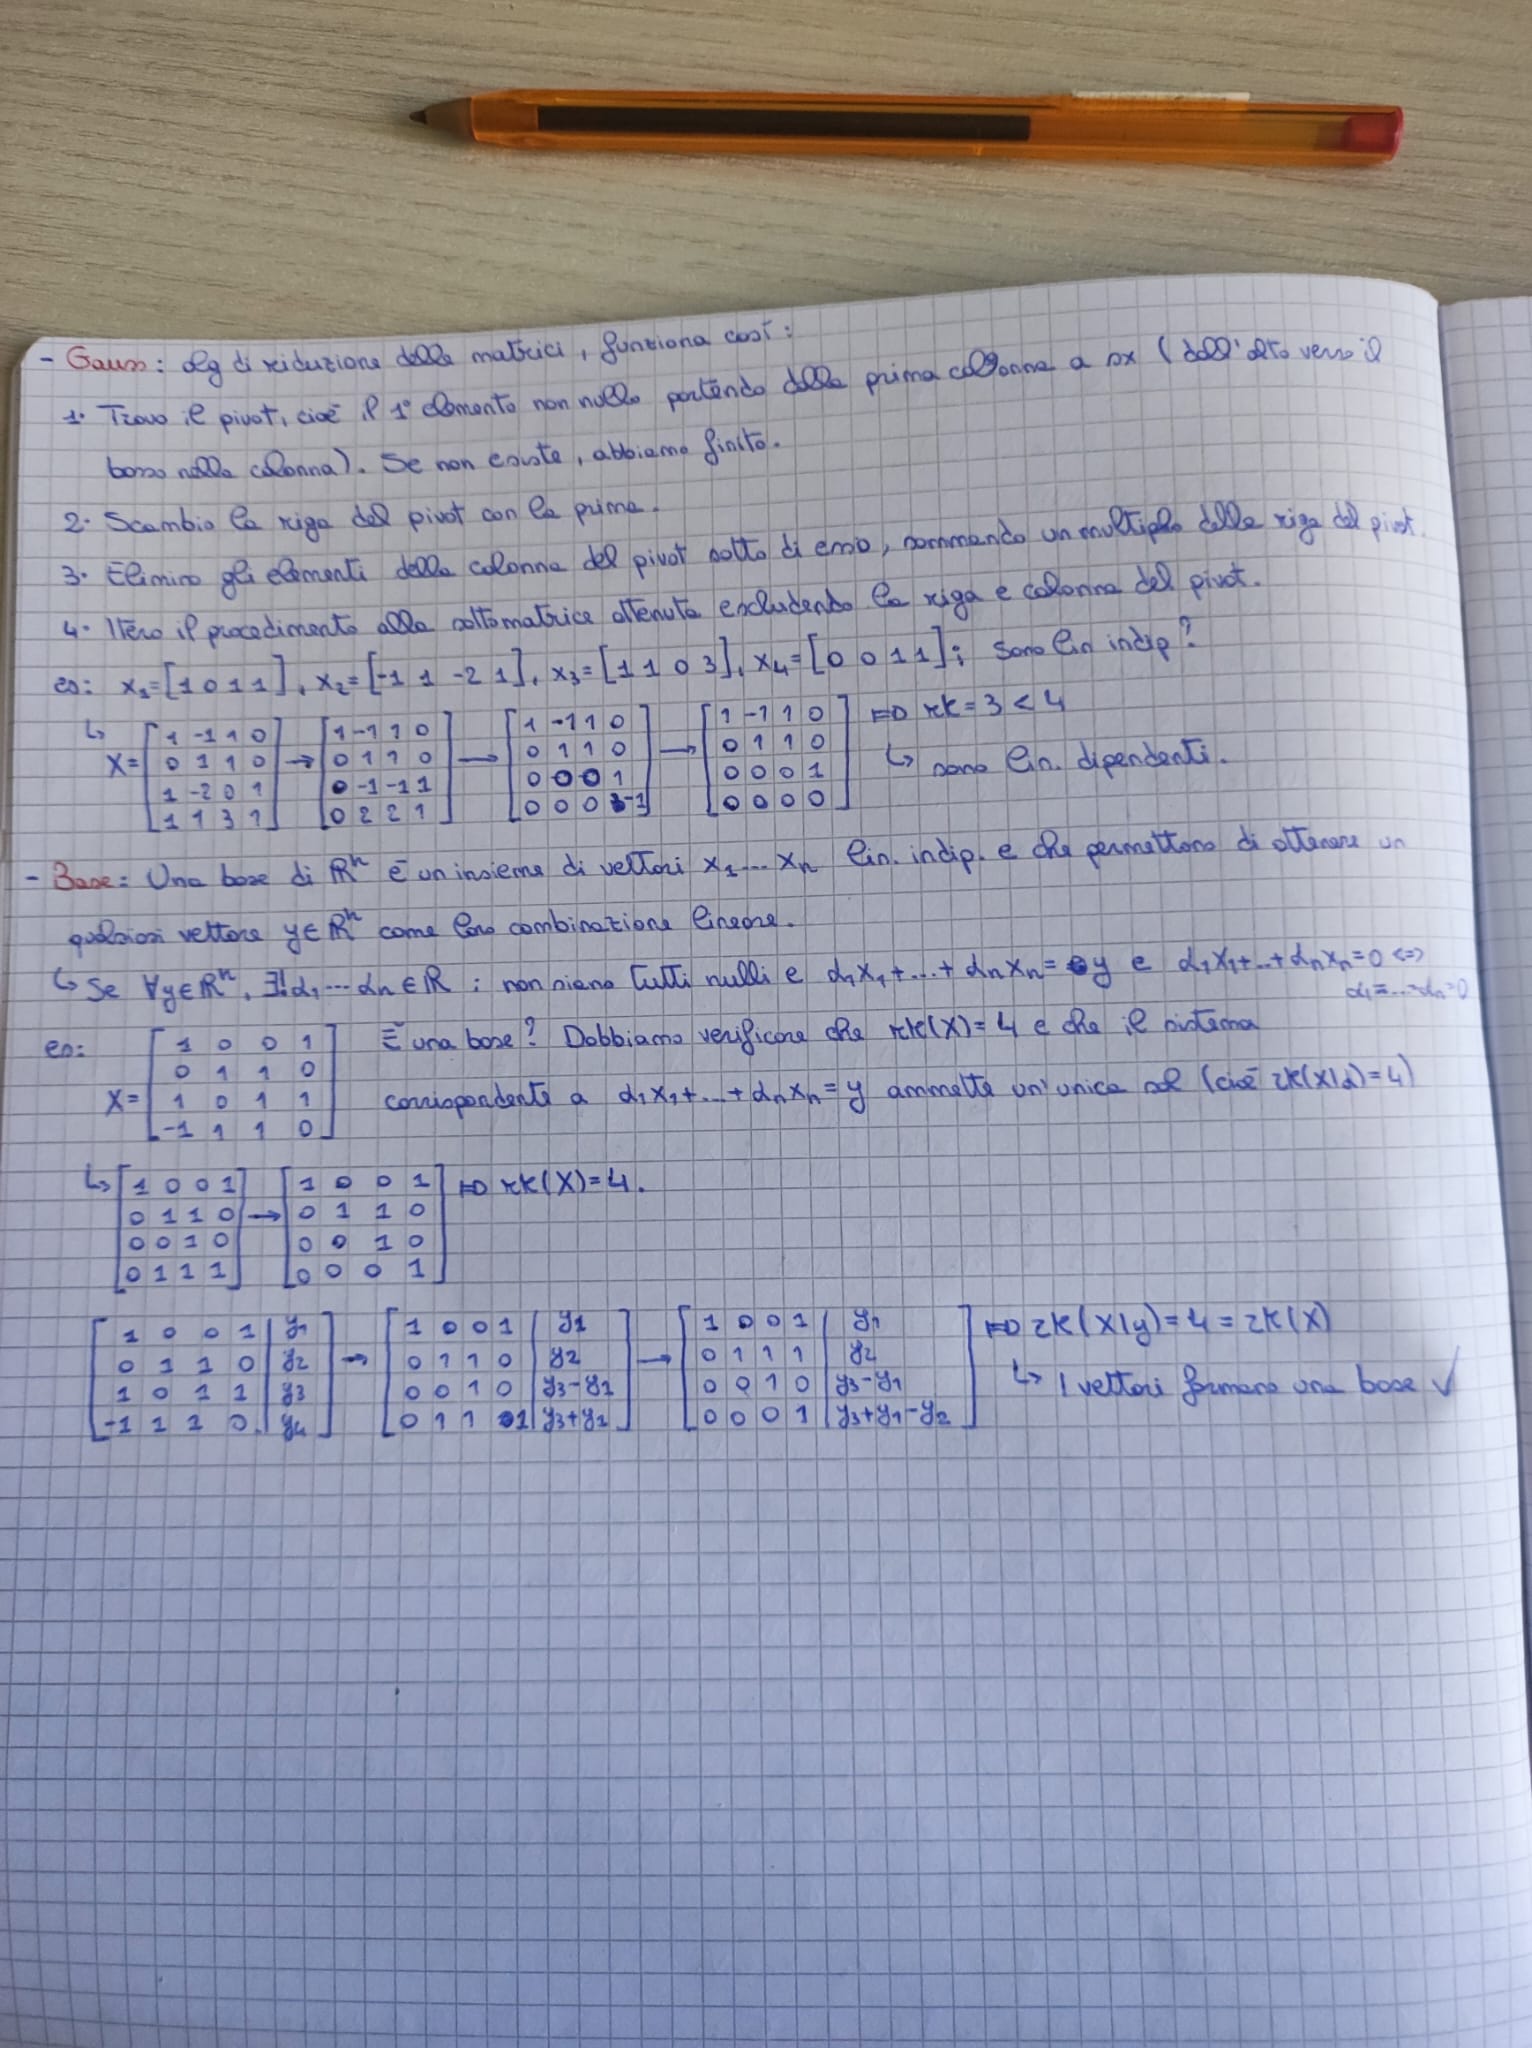 - Gauss: alg di riduzione delle matrici, funziona così:
1. Trovo il pivot, cioè il 1° elemento non nullo partendo dalla prima colonna a sx (dall'alto verso il
basso nella colonna). Se non esiste, abbiamo finito.
2. Scambio la riga del pivot con la prima.
3. Elimino gli elementi della colonna del pivot sotto di esso, sommando un multiplo della riga del pivot.
4. Itero il procedimento alla sottomatrice ottenuta escludendo la riga e colonna del pivot.
es: x₁=[1 0 1 1], x₂=[-1 1 -2 1], x₃=[1 1 0 3], x₄=[0 0 1 1]; sono lin indip?
↳ [1 -1 1 0] [1 -1 1 0] [1 -1 1 0] [1 -1 1 0] ⇒ rk = 3 < 4
X= [0 1 1 0] → [0 1 1 0] → [0 1 1 0] → [0 1 1 0] ↳ sono lin. dipendenti.
[1 -2 0 1] [0 -1 -1 1] [0 0 0 1] [0 0 0 1]
[1 1 3 1] [0 2 2 1] [0 0 0 -1] [0 0 0 0]
- Base: Una base di ℝⁿ è un insieme di vettori x₁...xₙ lin. indip. e che permettono di ottenere un
qualsiasi vettore y∈ℝⁿ come loro combinazione lineare.
↳ Se ∀y∈ℝⁿ, ∃!α₁...αₙ∈ℝ : non siano tutti nulli e α₁x₁+...+αₙxₙ=y e α₁x₁+...+αₙxₙ=0 <=>
α₁=...=αₙ=0
es: [1 0 0 1] È una base? Dobbiamo verificare che rk(X)=4 e che il sistema
[0 1 1 0]
X= [1 0 1 1] corrispondente a α₁x₁+...+αₙxₙ=y ammette un'unica sol (cioè rk(X|α)=4)
[-1 1 1 0]
↳ [1 0 0 1] [1 0 0 1] ⇒ rk(X)=4.
[0 1 1 0] → [0 1 1 0]
[0 0 1 0] [0 0 1 0]
[0 1 1 1] [0 0 0 1]
[1 0 0 1 | y₁] [1 0 0 1 | y₁] [1 0 0 1 | y₁] ⇒ rk(X|y)=4=rk(X)
[0 1 1 0 | y₂] → [0 1 1 0 | y₂] → [0 1 1 1 | y₂]
[1 0 1 1 | y₃] [0 0 1 0 | y₃-y₁] [0 0 1 0 | y₃-y₁] ↳ I vettori formano una base ✓
[-1 1 1 0 | y₄] [0 1 1 1 | y₃+y₁] [0 0 0 1 | y₃+y₁-y₂]